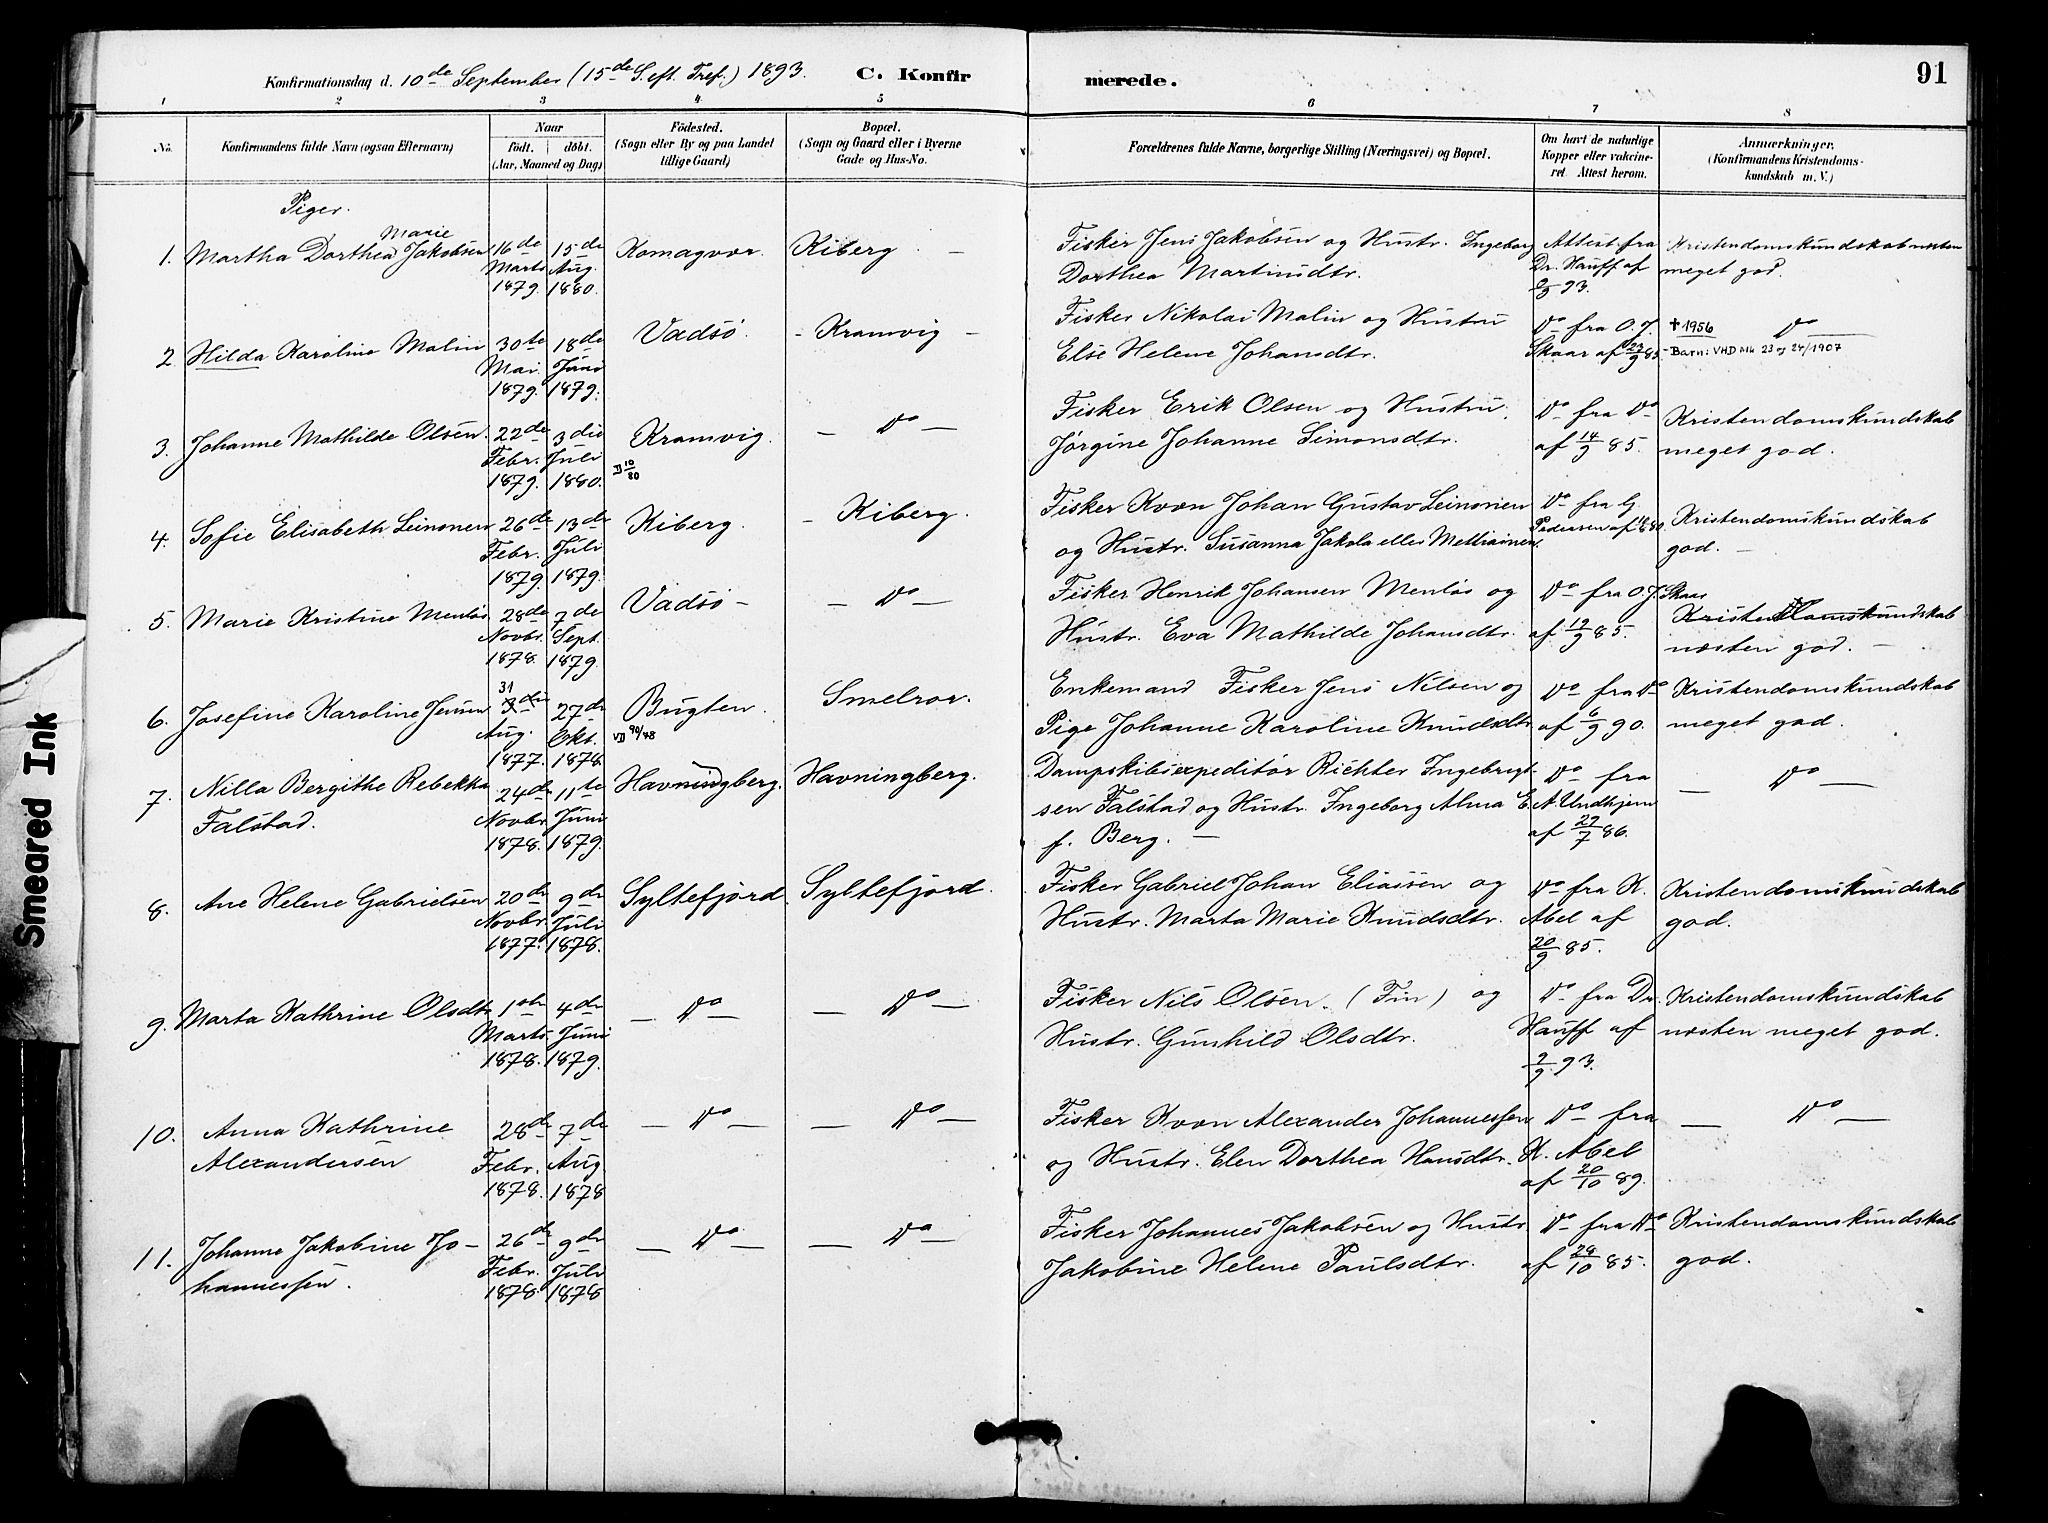 Konfirmationsdag d. 10de September (15de S. eft. Tref.) 1893. C. Konfirmerede. 91
1 2 3 4 5 6 7 8
No.
Konfirmandens fulde Navn (ogsaa Efternavn)
Naar
Födt. döbt.
(Aar, Maaned og Dag)
Födested.
(Sogn eller By og paa Landet
tillige Gaard)
Bopæl.
(Sogn og Gaard eller i Byerne
Gade og Hus-No.
Forældrenes fulde Navne, borgerlige Stilling (Næringsvei) og Bopæl.
Om havt de naturlige
Kopper eller vakcine-
ret. Attest herom.
Anmærkninger,
(Konfirmandens Kristendoms-
kundskab m. V.)
Piger.
1. Martha Dorthea Marie Jakobsen 16de Marts 1879. 15de Aug. 1880. Komagvær. Kiberg –
Fisker Jens Jakobsen og Hustr. Ingeborg
Dorthea Martinusdtr.
Attest fra
Dr. Hauff af
93.
Kristendomskundskab næsten
meget god.
2 Hilda Karoline Malin 30te Mai. 1879. 18de Juni 1879. Vadsö. – Kramvig –
Fisker Nikolai Malin og Hustru
Else Helene Johansdtr.
Do fra O. J.
Skaar af 23/9 85.
† 1956 Do
Barn: VHD Mk 23 og 24/1907
3. Johanne Mathilde Olsen. 22de Febr. 1879. 3die Juli 1880. Kramvig. – Do –
D 10/80
Fisker Erik Olsen og Hustru
Jørgine Johanne Simonsdtr.
Do fra Do
af 14/9 85.
Kristendomskundskab
meget god.
4. Sofie Elisabeth Leinonen 26de Febr. 1879. 13de Juli 1879. Kiberg. – Kiberg.
Fisker Kvæn Johan Gustav Leinonen
og Hustr. Susanna Jakola eller Mettiainen.
Do fra G.
Pedersen af
Kristendomskundskab
god. –
5. Marie Kristine Menløs 28de Novbr. 1878. 7de Sept. 1879. Vadsö – – Do –
Fisker Henrik Johansen Menløs og
Hustr. Eva Mathilde Johansdtr.
Do fra O. J. Skaar
af 19/9 85.
Kristendomskundskab
næsten god. –
6. Josefine Karoline Jensen 31 Aug. 1877. 27de Okt. 1878. Bugten. Smelror.
VD 90/48
Enkemand Fisker Jens Nilsen og
Pige Johanne Karoline Knudsdtr.
Do fra Do
af 6/9 90.
Kristendomskundskab
meget god.
7. Nilla Bergithe Rebekka
Falstad. 24de Novbr. 1878. 11te Juni 1879. Havningberg. Havningberg.
Dampskibsexpeditör Richter Ingebrigt-
sen Falstad og Hustr. Ingeborg Alma E.
f. Berg. –
Do fra
A. Undhjem
af 29/7 86.
– Do –
8. Ane Helene Gabrielsen 20de Novbr. 1877. 9de Juli 1878. Syltefjord. Syltefjord.
Fisker Gabriel Johan Eliassen og
Hustr. Marta Marie Knudsdtr.
Do fra K.
Abel af
20/9 85.
Kristendomskundskab
god.
9. Marta Kathrine Olsdtr. 1ste Marts 1878. 4de Juni 1879. – Do – – Do –
Fisker Nils Olsen. (Fin) og
Hustr. Gunhild Olsdtr.
Do fra Dr.
Hauff af
9/9 93.
Kristendomskundskab
næsten meget god.
10. Anna Kathrine
Alexandersen 28de Febr. 1878. 7de Aug. 1878 – Do – – Do –
Fisker Kvæn Alexander Johannessen
og Hustr. Elen Dorthea Hansdtr.
Do fra
K. Abel
af 20/10 89.
– Do –
11. Johanne Jakobine Jo-
hannessen. 26de Febr. 1878. 9de Juli 1878 – Do – – Do –
Fisker Johannes Jakobsen og Hustr
Jakobine Helene Paulsdtr.
Do fra Do
af 28/10 85.
Kristendomskundskab
god.
Smeared Ink